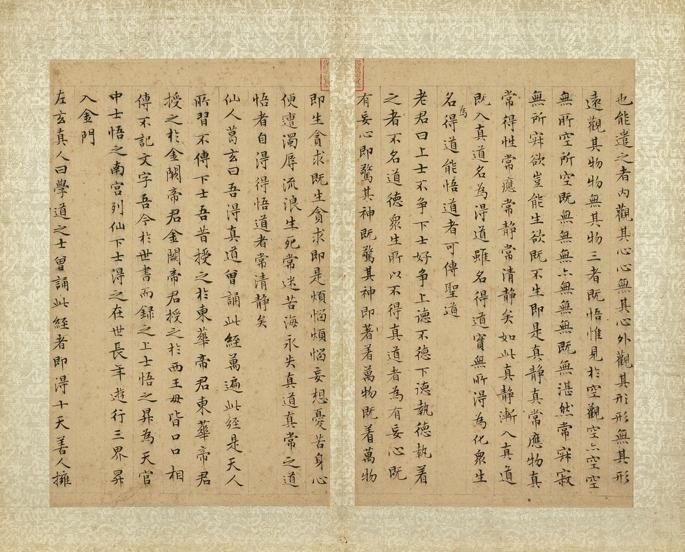 也能遣之者内觀其心心無其心外觀其形形無其形
遠觀其物物無其物三者既悟惟見於空觀空亦空空
無所空所空既無無無亦無無無既無湛然常寂寂
無所寂欲豈能生欲既不生即是真静真常應物真
常得性常應常静常清静矣如此真静漸入真道
既入真道名為得道雖名得道實無所得為化衆生
名為得道能悟道者可傳聖道
老君曰上士不争下士好争上德不德下德執德執着
之者不名道德衆生所以不得真道者為有妄心既
有妄心即驚其神既驚其神即著着萬物既着萬物
即生貪求既生貪求即是煩惱煩惱妄想憂苦身心
便遭濁辱流浪生死常迷苦海永失真道真常之道
悟者自得得悟道者常清静矣
仙人葛玄曰吾得真道曾誦此經萬遍此經是天人
所習不傳下士吾昔授之於東華帝君東華帝君
授之於金闕帝君金闕帝君授之於西王母皆口口相
傳不記文字吾今於世書而録之上士悟之昇為天官
中士悟之南宫列仙下士得之在世長年遊行三界昇
入金門
左玄真人曰學道之士曾誦此經者即得十天善人擁